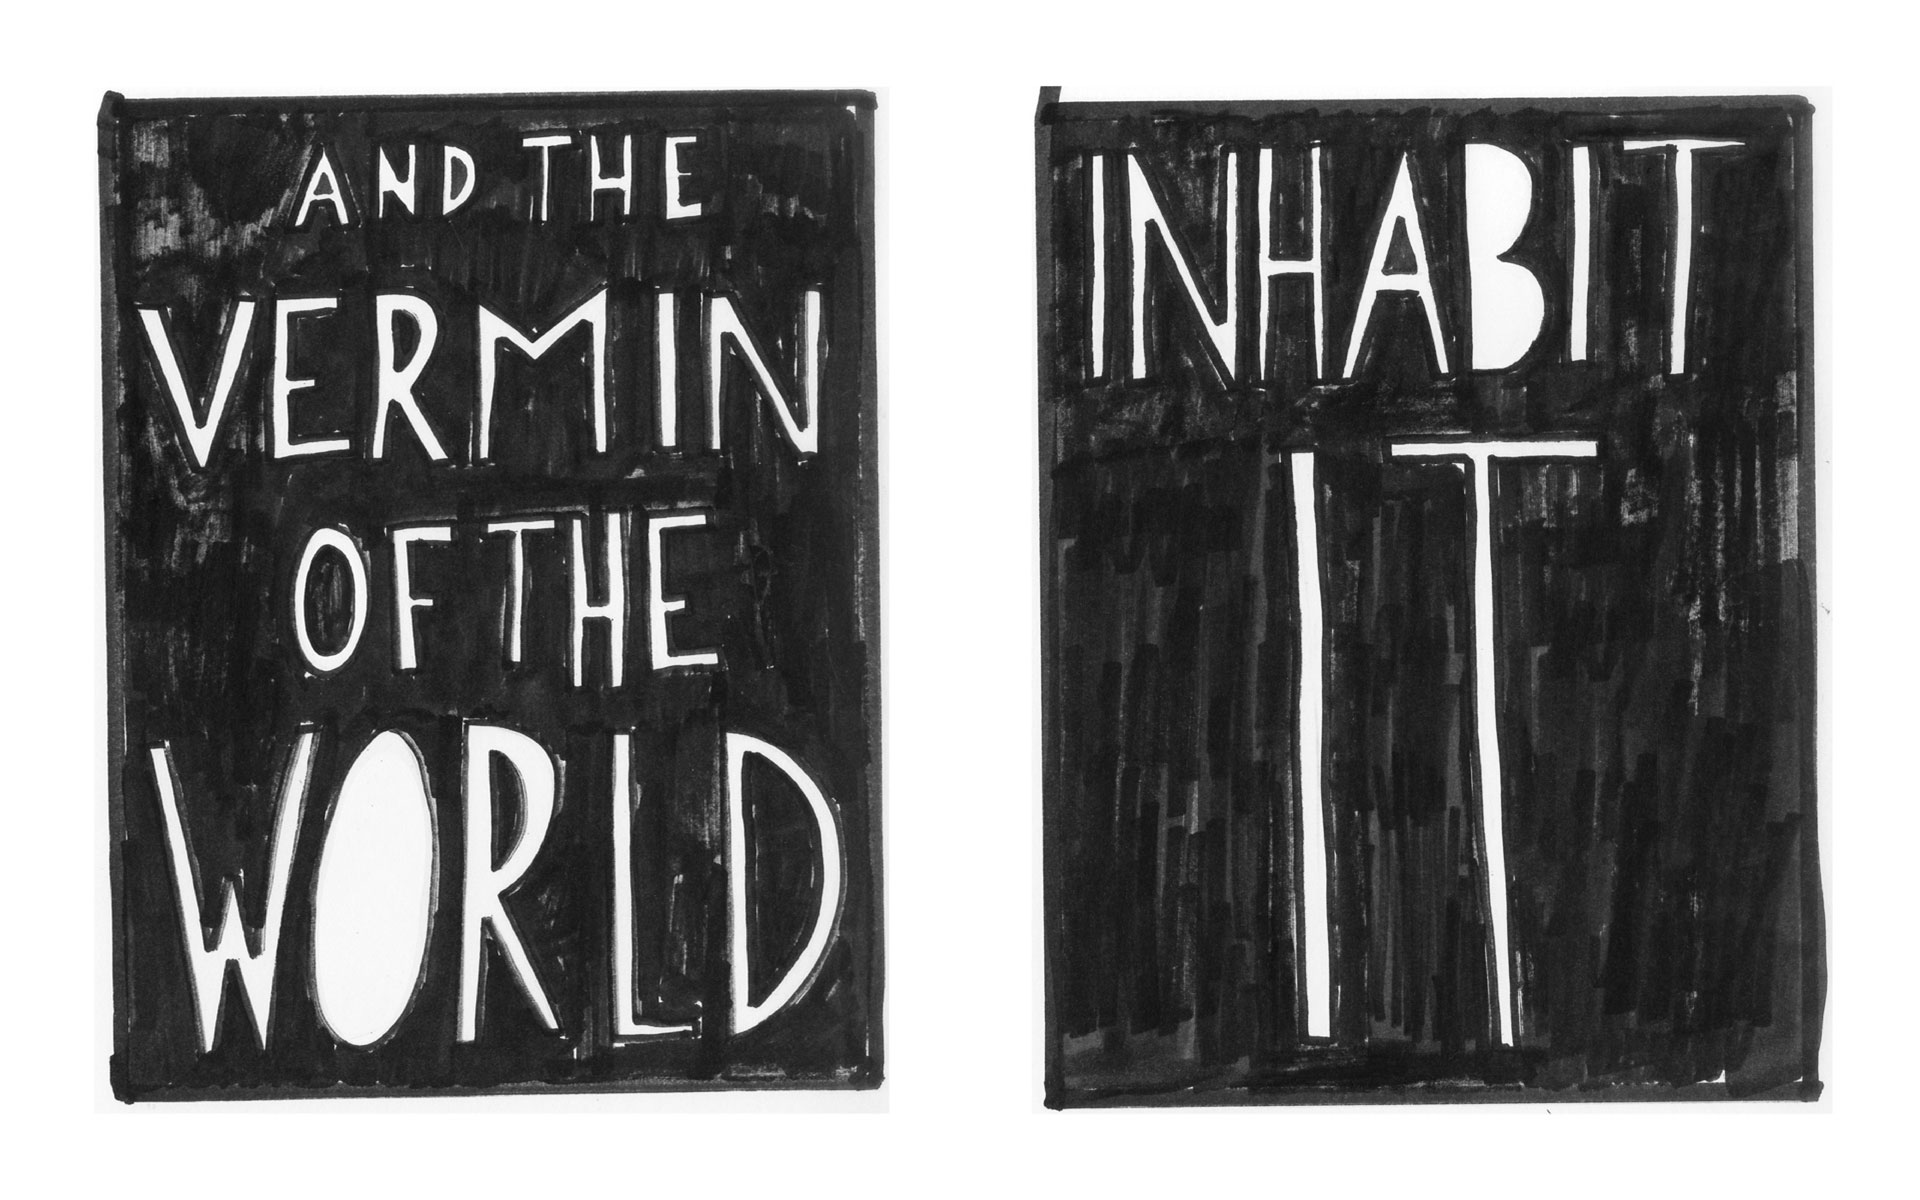 AND THE
VERMIN
OF THE
WORLD
INHABIT
IT